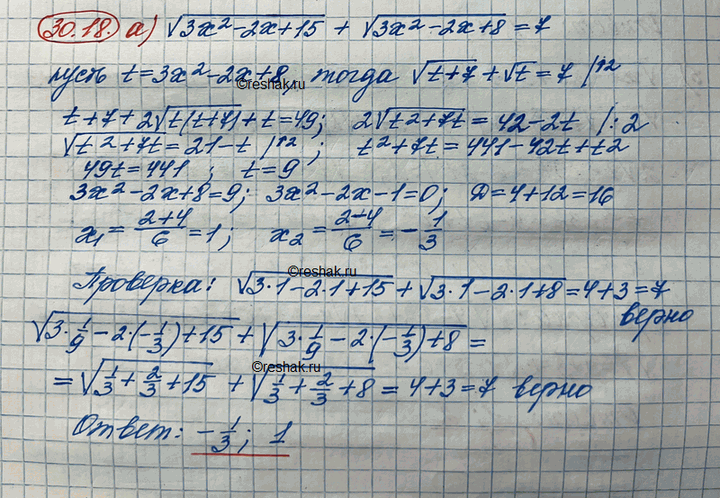 30.18. а) √3x²-2x+15 + √3x²-2x+8 = 7
пусть t=3x²-2x+8, тогда √t+7 + √t = 7 |↑2
©reshak.ru
t+7+2√t(t+7) + t = 49; 2√t²+7t = 42-2t |:2
√t²+7t = 21-t |↑2 ; t²+7t = 441-42t+t2
49t=441 ; t=9
3x²-2x+8=9; 3x²-2x-1=0; D=4+12=16
x₁ = (2+4)/6 = 1; x₂ = (2-4)/6 = -1/3
©reshak.ru
Проверка: √3·1-2·1+15 + √3·1-2·1+8 = 4+3=7
верно
√3·1/9-2·(-1/3)+15 + √3·1/9-2·(-1/3)+8 =
©reshak.ru
= √1/3+2/3+15 + √1/3+2/3+8 = 4+3=7 верно
Ответ: -1/3; 1